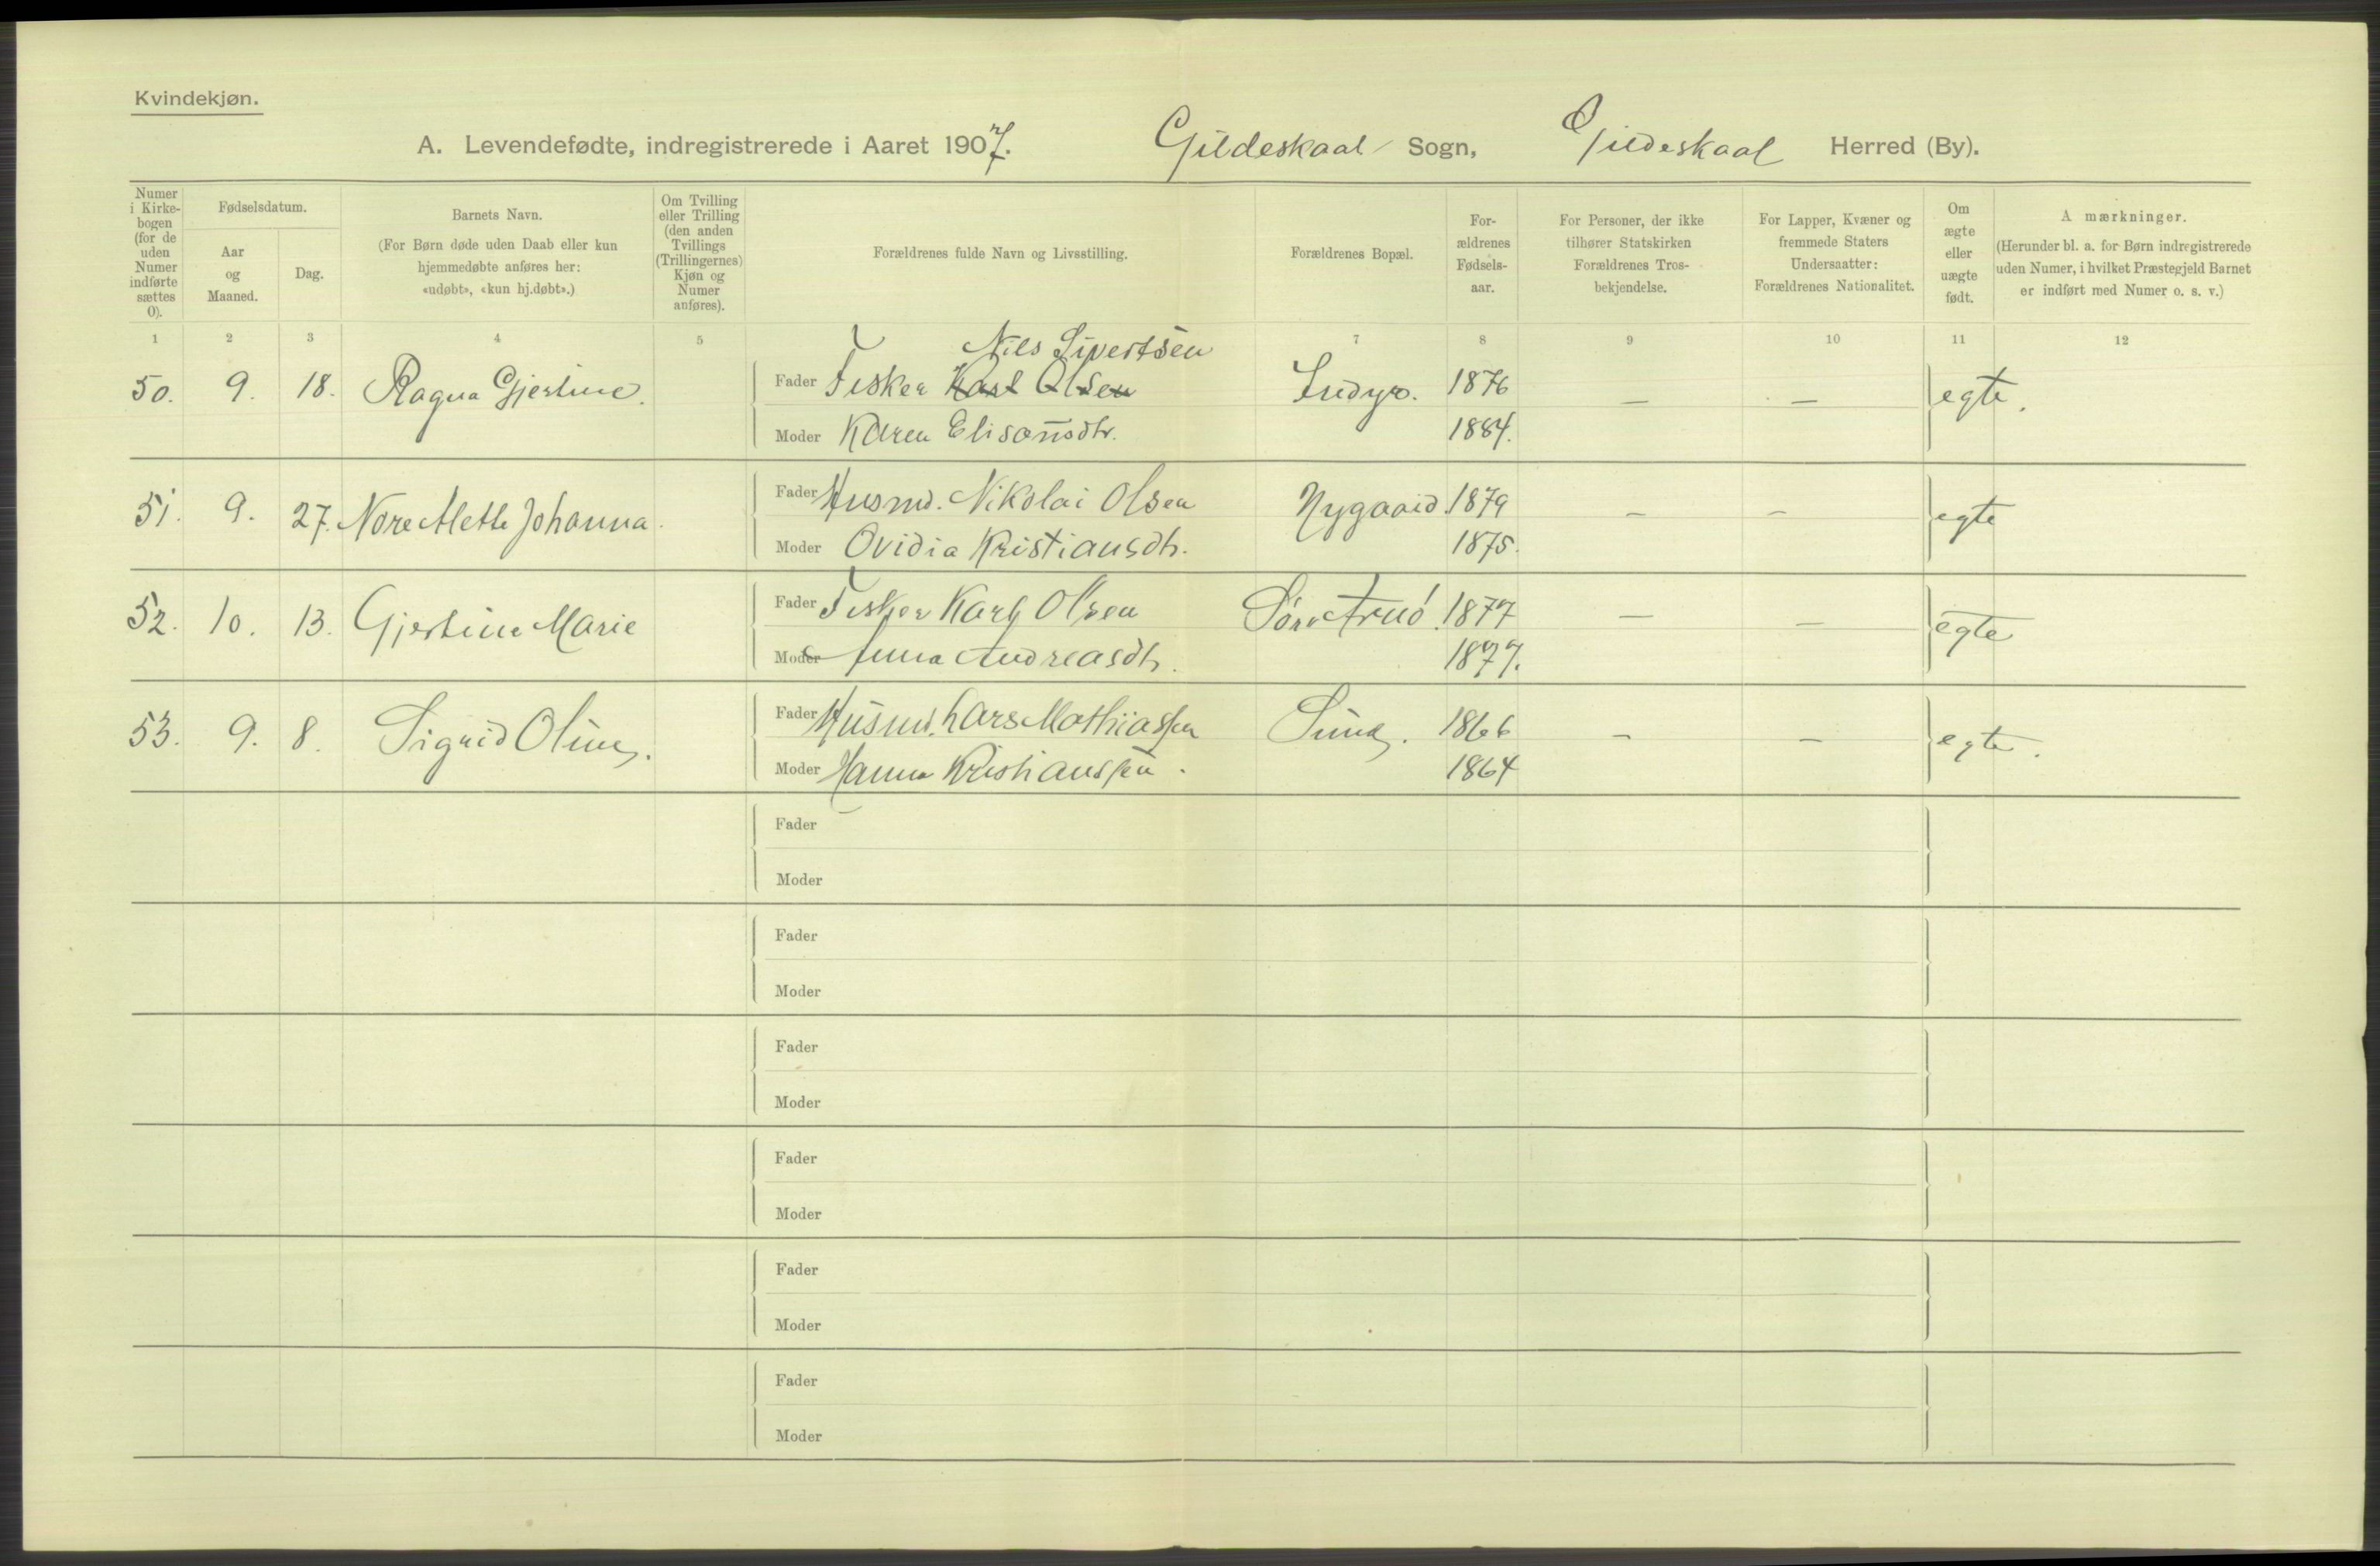 Kvindekjøn.
A. Levendefødte, indregistrerede i Aaret 1907. Gildeskaal Sogn, Gildeskaal Herred (By).
Numer i Kirkebogen (for de uden Numer indførte sættes 0).
Fødselsdatum.
Aar og Maaned.
Dag.
Barnets Navn.
(For Børn døde uden Daab eller kun hjemmedøbte anføres her: «udøbt», «kun hj.døbt».)
Om Tvilling eller Trilling (den anden Tvillings (Trillingernes) Kjøn og Numer anføres).
Forældrenes fulde Navn og Livsstilling.
Forældrenes Bopæl.
For-ældrenes Fødsels-aar.
For Personer, der ikke tilhører Statskirken Forældrenes Tros-bekjendelse.
For Lapper, Kvæner og fremmede Staters Undersaatter: Forældrenes Nationalitet.
Om ægte eller uægte født.
A mærkninger.
(Herunder bl. a. for Børn indregistrerede uden Numer, i hvilket Præstegjeld Barnet er indført med Numer o. s. v.)
1 2 3 4 5 7 8 9 10 11 12
Nils Sivertsen
50. 9. 18. Ragna Gjertine. Fader Fisker Karl Olsen Indyr. 1876 — — egte.
Moder Karen Elisansdtr. 1884.
51. 9. 27. Nore Alette Johanna. Fader Husmd. Nikolai Olsen Nygaard. 1879 — — egte
Moder Ovidia Kristiansdtr. 1875.
52. 10. 13. Gjertine Marie Fader Fisker Karl Olsen Søre Arnø. 1877 — — egte
Moder Anna Andreasdtr. 1877.
53. 9. 8. Sigrid Oline. Fader Husmd. Lars Mathiassen Sund. 1866 — — egte.
Moder Hanna Kristianssen. 1864
Fader
Moder
Fader
Moder
Fader
Moder
Fader
Moder
Fader
Moder
Fader
Moder